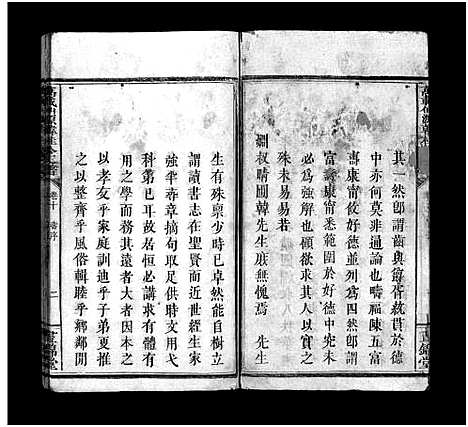 其一然卽謂齒與爵胥統貫於德
中亦何莫非通論也疇福陳五富
壽康寧攸好德並列為四然卽謂
富康寧悉範圍於好德中究未
必為強解也顧欲求其人以實之
殊未易易耳
嗣叔晴圃韓先生庶無愧焉 先生
生有殊稟少時已卓然能自樹立
謂讀書志在聖賢而近世經生家
強半尋章摘句取足供時文用弋
科第已耳故居恒必講求有體有
用務為其遠者大者因本之
以孝友乎家庭訓迪乎子弟更推
之以整齊乎風俗輯睦乎鄉鄰閒
卷十
二
晝錦堂
晝錦堂